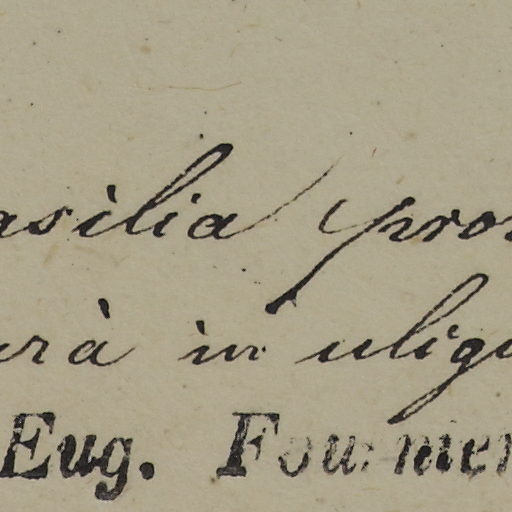 asilia pro
urà in uligi
Eug. Fournier